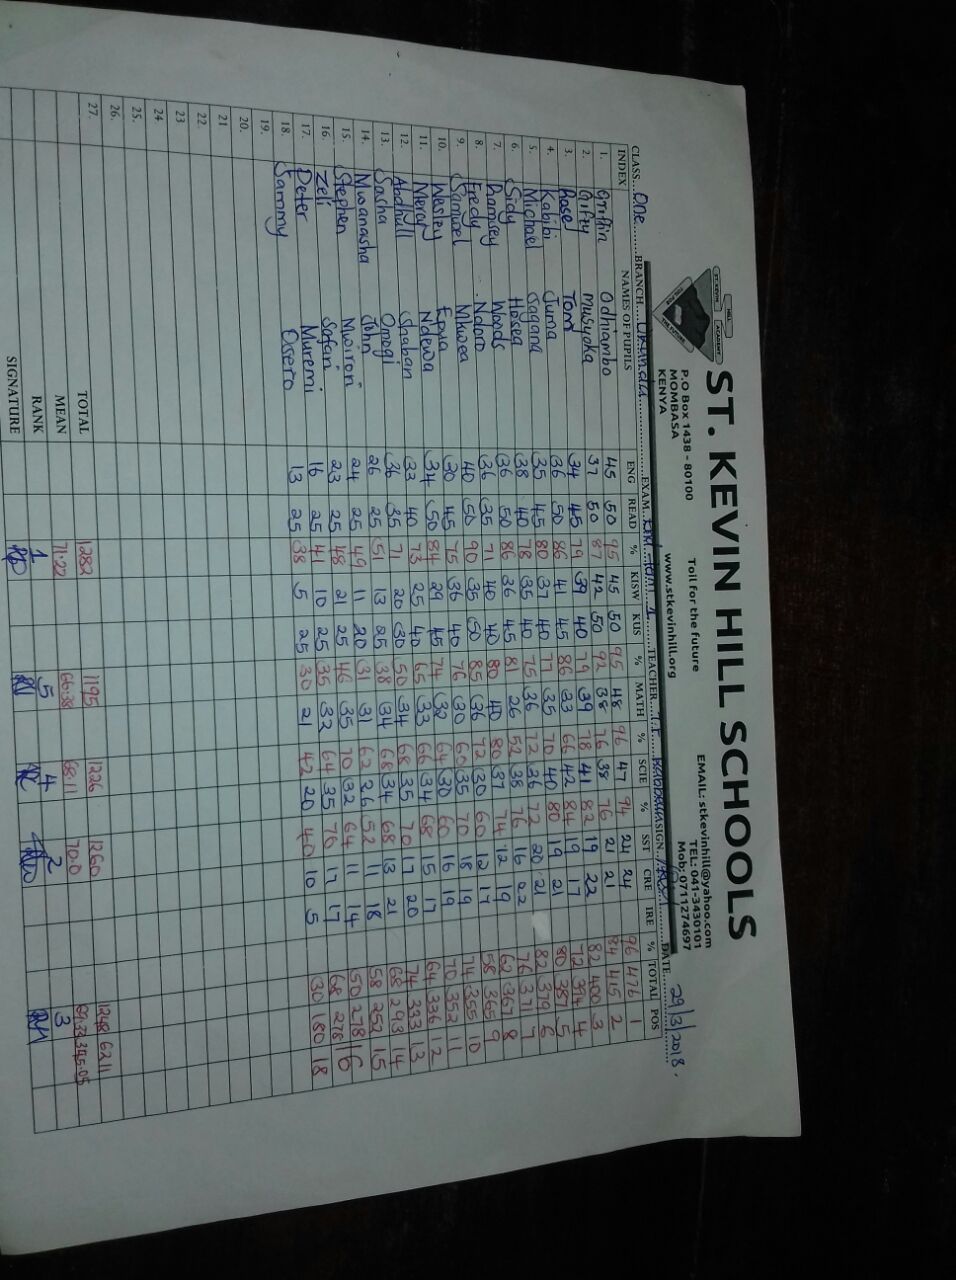 ST. KEVIN HILL SCHOOLS
ST. KEVIN HILL ACADEMY
TOIL FOR THE FUTURE
P.O Box 1438 - 80100
MOMBASA
KENYA
Toil for the future
www.stkevinhill.org
EMAIL: stkevinhill@yahoo.com
TEL: 041-3430101
Mob: 0711274697
CLASS... One ... BRANCH... Ukunda ... EXAM... 1 ... TEACHER... SIGN... DATE... 29/3/2018.
INDEX NAMES OF PUPILS ENG READ % KISW KUS % MATH % SCIE % SST CRE IRE % TOTAL POS
1. Griffin Odhiambo 45 50 95 45 50 95 48 96 47 94 24 24 96 476 1
2. Gifty Musyoka 37 50 87 42 50 92 38 76 38 76 21 21 84 415 2
3. Rose Tom 34 45 79 39 40 79 39 78 41 82 19 22 82 400 3
4. Kabibi Juma 36 50 86 41 45 86 33 66 42 84 19 17 72 394 4
5. Michael Jagana 35 45 80 37 40 77 35 70 40 80 19 21 80 387 5
6. Sidy Hosea 38 40 78 35 40 75 36 72 36 72 20 21 82 379 6
7. Ramsey Woods 36 50 86 36 45 81 26 52 38 76 16 22 76 371 7
8. Fredy Ndoro 36 35 71 40 40 80 40 80 37 74 12 19 62 367 8
9. Samuel Mkwea 40 50 90 35 50 85 36 72 30 60 12 17 58 365 9
10. Wesley Epua 30 45 75 36 40 76 30 60 35 70 18 19 74 355 10
11. Mercy Ndewa 34 50 84 29 45 74 32 64 30 60 16 19 70 352 11
12. Abdhull Shaban 33 40 73 25 40 65 33 66 34 68 15 17 64 336 12
13. Sasha Omogi 36 35 71 20 30 50 34 68 35 70 17 20 74 333 13
14. Mwanasha John 26 25 51 13 25 38 34 68 34 68 13 21 68 293 14
15. Stephen 24 25 49 11 20 31 31 62 26 52 11 18 58 252 15
16. Zeli Safari 23 25 48 21 25 46 35 70 32 64 11 14 50 278 16
17. Peter Muremi 16 25 41 10 25 35 32 64 35 70 17 17 68 278
18. Sammy 13 25 38 5 25 30 21 42 20 40 10 5 30 180 18
19.
20.
21
22.
23
24
25.
26.
27.
TOTAL 1282 1195 1226 1260 1248 6211
MEAN 71.22 66.38 68.11 70.0 69.33 345.05
RANK 1 5 4 2 3
SIGNATURE